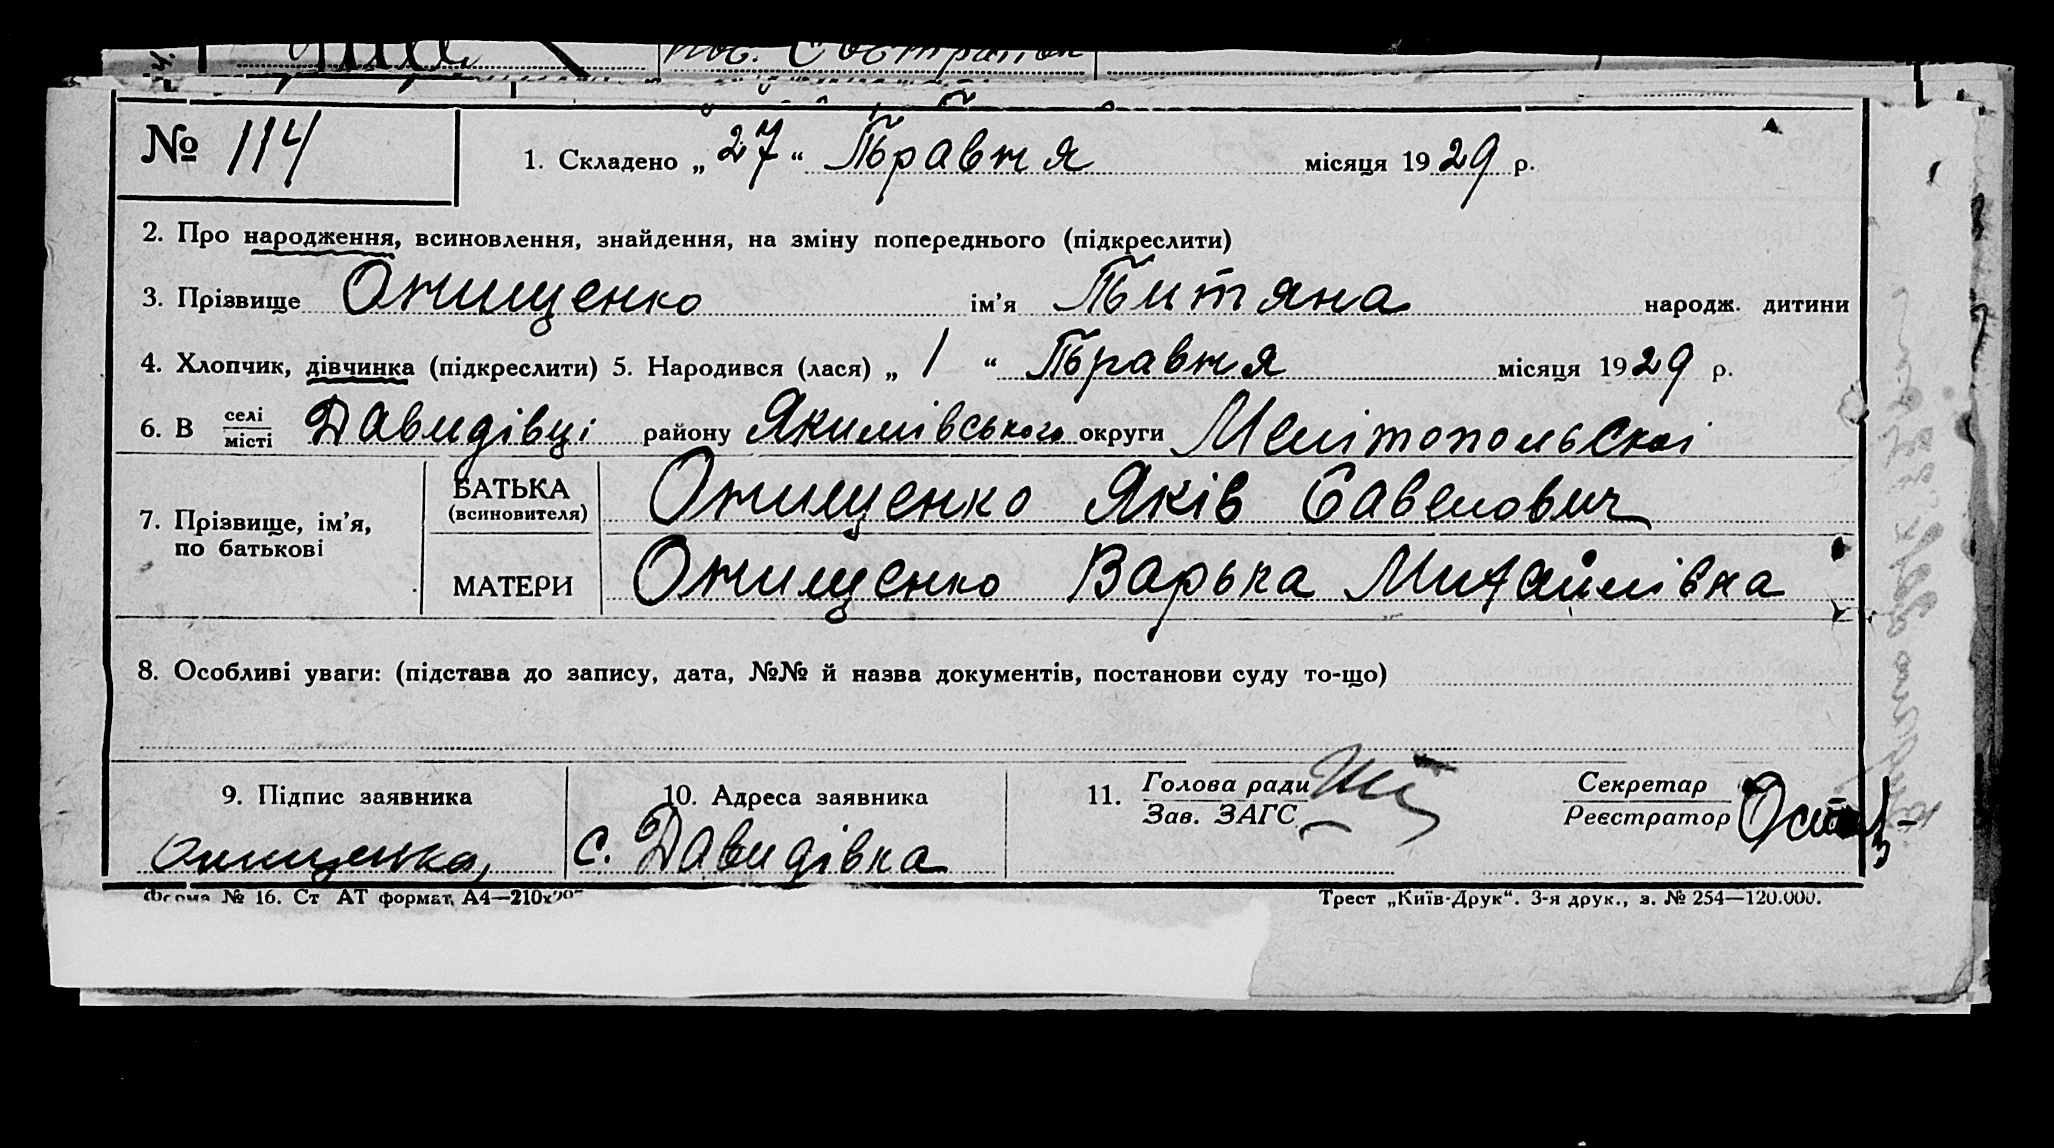 № 114
1. Складено „ 27 “ Травня місяця 1929 р.
2. Про народження, всиновлення, знайдення, на зміну попереднього (підкреслити)
3. Прізвище Онищенко ім’я Титяна народж. дитини
4. Хлопчик, дівчинка (підкреслити) 5. Народився (лася) „ 1 “ Травня місяця 1929 р.
6. В селі місті Давидівці району Якимівського округи Мелітопольскої
7. Прізвище, ім’я, по батькові
БАТЬКА (всиновителя) Онищенко Яків Савелович
МАТЕРИ Онищенко Варька Михайлівна
8. Особливі уваги: (підстава до запису, дата, №№ й назва документів, постанови суду то-що)
9. Підпис заявника 10. Адреса заявника 11. Голова ради Зав. ЗАГС Секретар Реєстратор
Онищенко, с. Давидівка
Форма № 16. Ст АТ формат, А4—210х297 Трест „Київ-Друк“. 3-я друк., з. № 254—120.000.